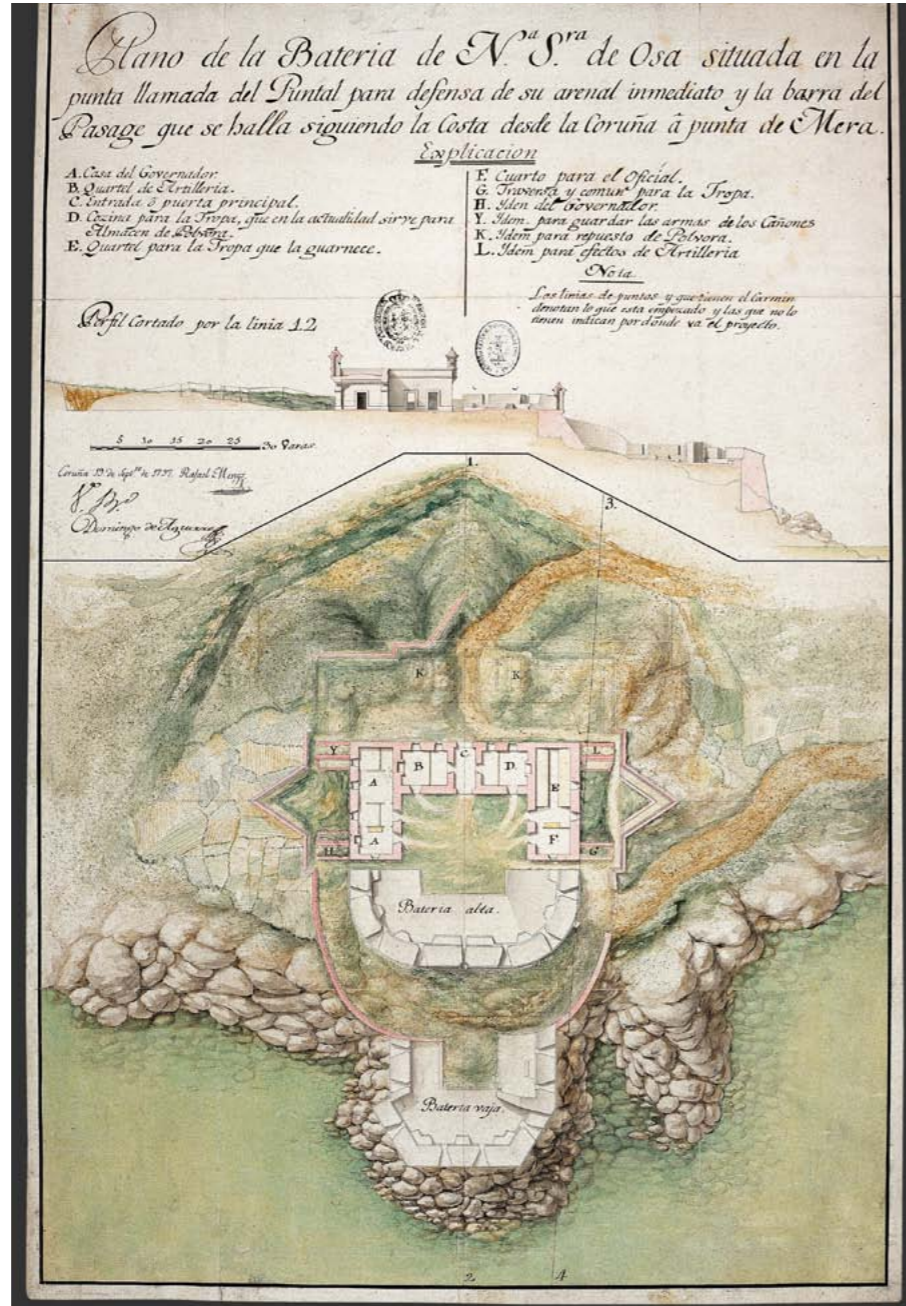 Plano de la Bateria de N.ª S.ra de Osa situada en la
punta llamada del Puntal para defensa de su arenal inmediato y la barra del
Pasage que se halla siguiendo la Costa desde la Coruña â punta de Mera.
Explicacion
A. Casa del Governador.
B. Quartel de Artilleria.
C. Entrada ô puerta principal.
D. Cozina para la Tropa, que en la actualidad sirve para
Almacen de Polvora.
E. Quartel para la Tropa que la guarnece.
F. Cuarto para el Oficial.
G. Traversa y comun para la Tropa.
H. Yden del Governador.
Y. Idem. para guardar las armas de los Cañones
K. Ydem para repuesto de Polvora.
L. Ydem para efectos de Artilleria
Nota
Las linias de puntos y que tienen el Carmin
denotan lo que esta empezado y las que no lo
tienen indican por donde va el proyecto.
Perfil Cortado por la linia 12
5 10 15 20 25 30 Varas.
Coruña 13 de Sept.re de 1797. Rafael
V.º B.º
Domingo de
1.
3.
K
K
Y
B
C
D
L
A
E
A
F
H
G
Bateria alta.
Bateria vaja.
2
4